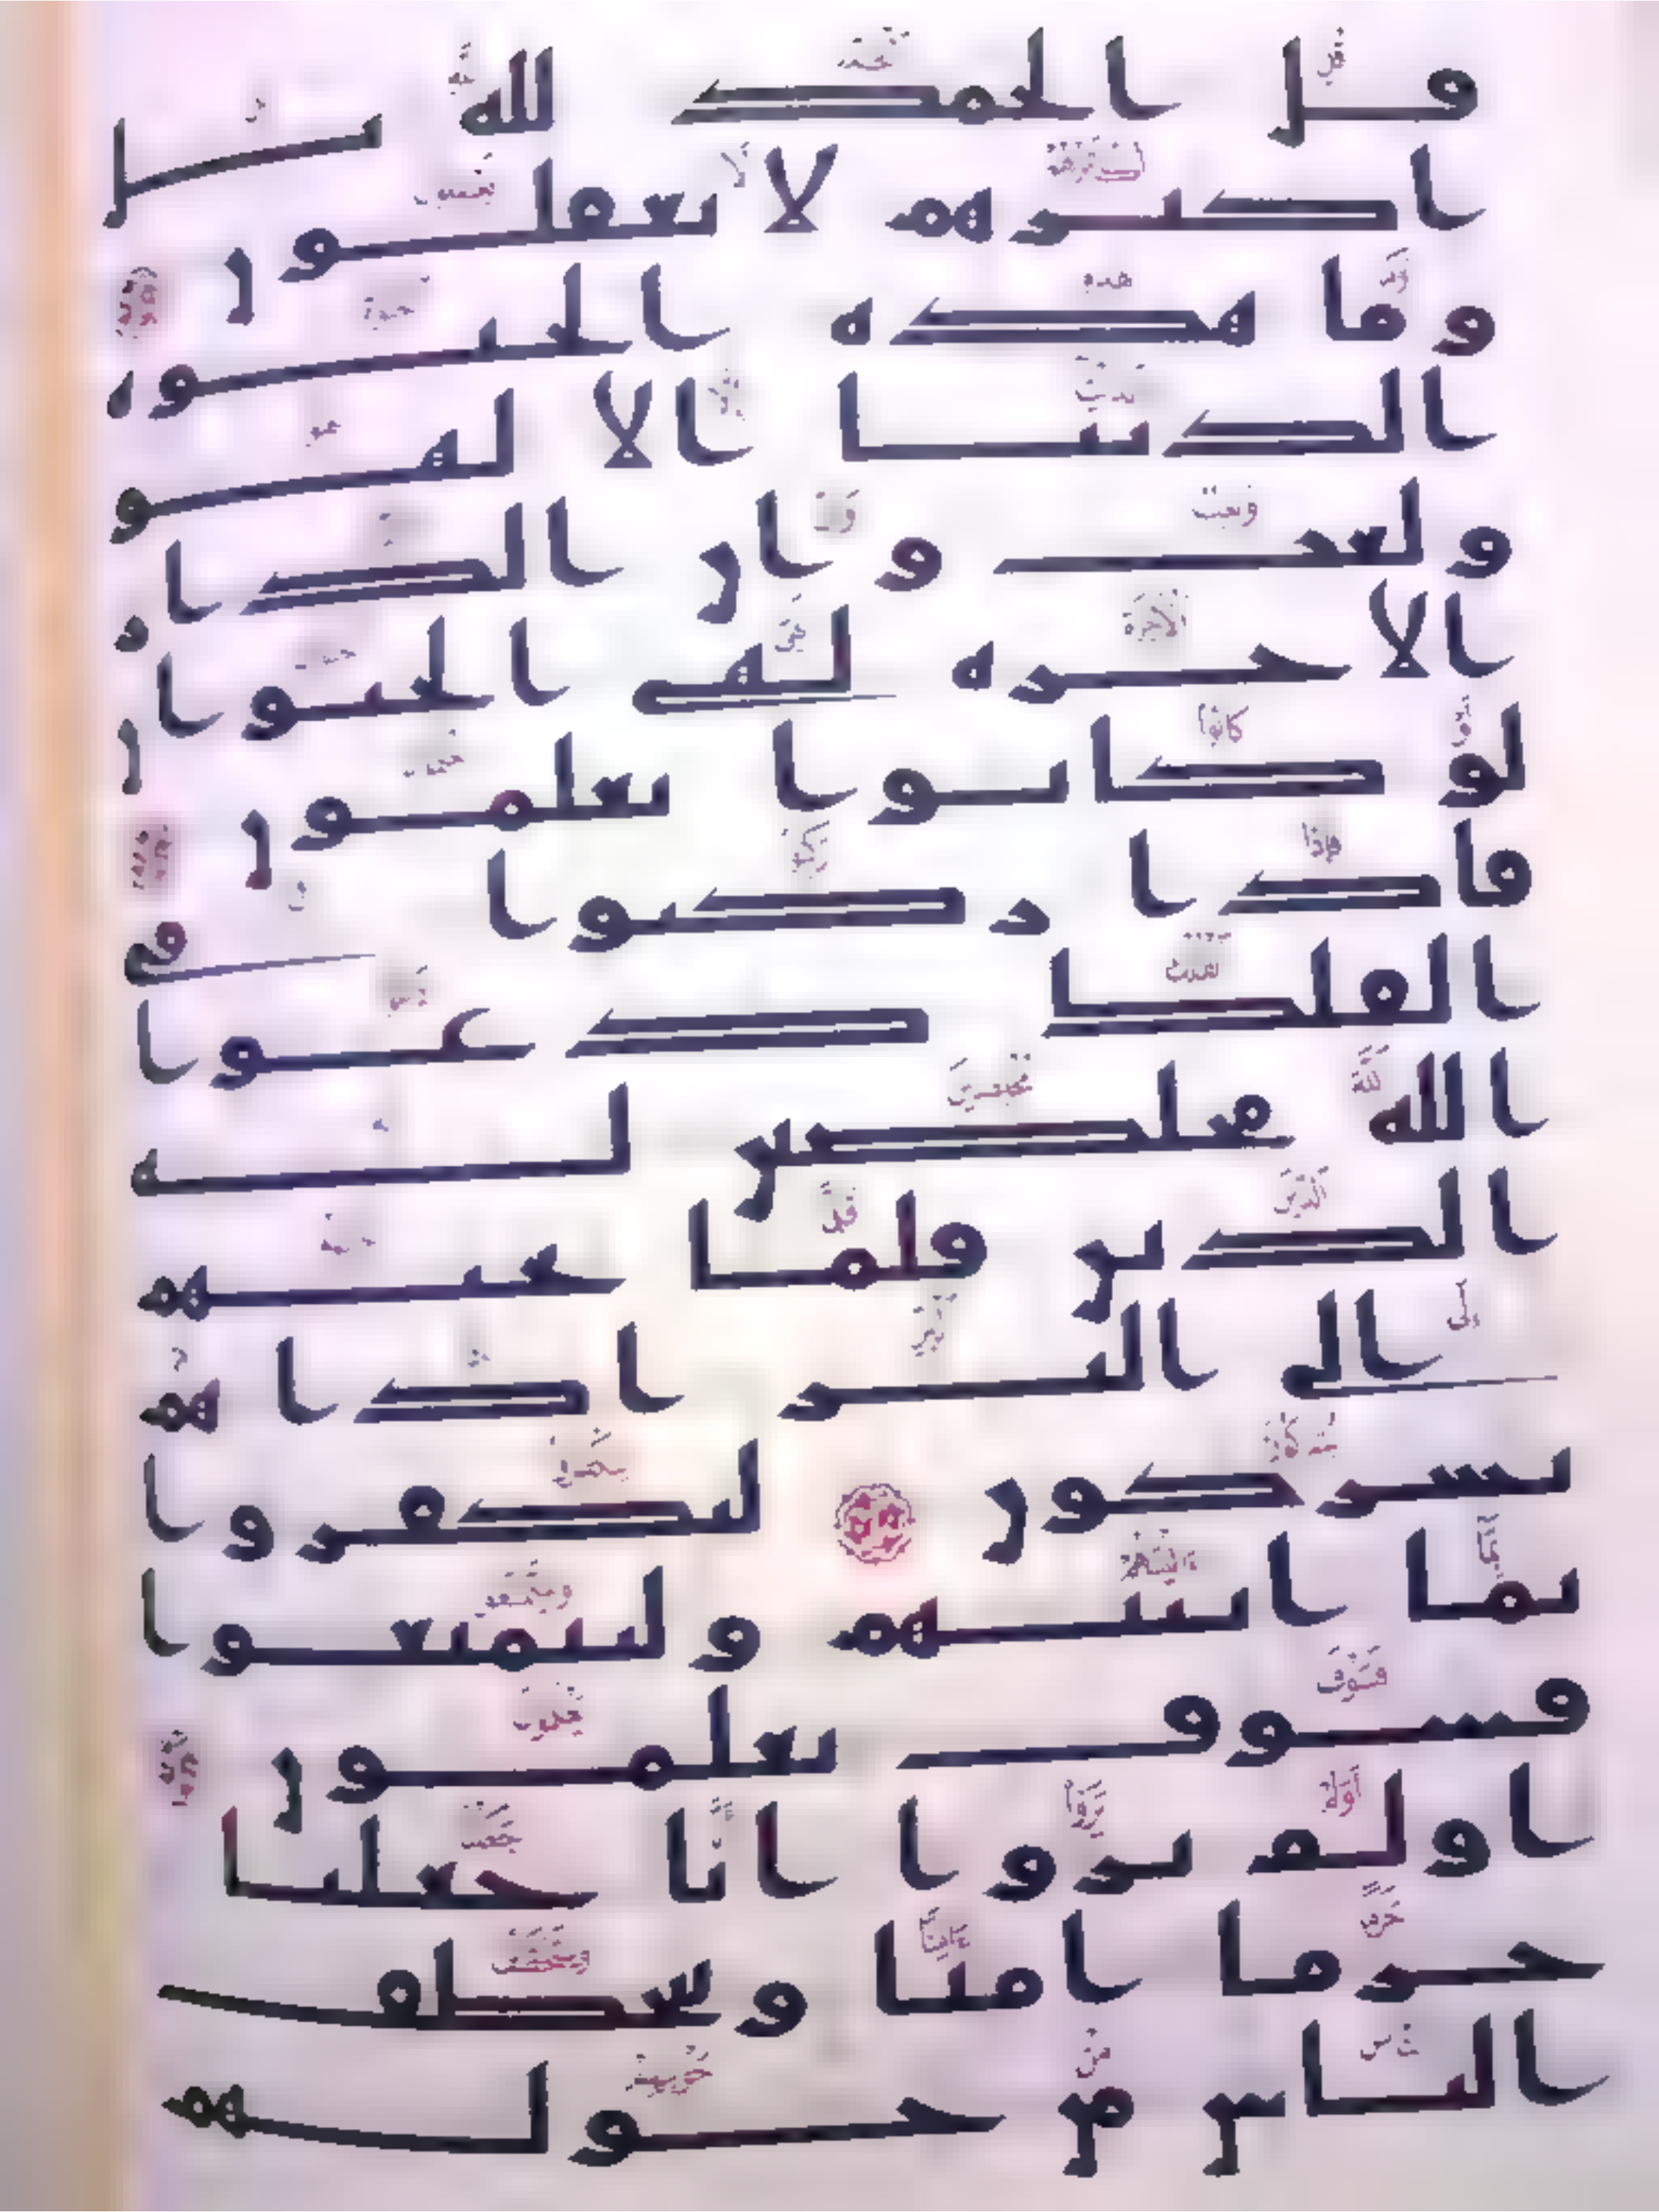 قل الحمد لله بل
اكثرهم لا يعقلون
وما هذه الحيوة
الدنيا الا لهو
ولعب وان الدار
الاخرة لهي الحيوان
لو كانوا يعلمون
فاذا ركبوا في
الفلك دعوا
الله مخلصين له
الدين فلما نجيهم
الى البر اذا هم
يشركون ليكفروا
بما اتينهم وليتمتعوا
فسوف يعلمون
اولم يروا انا جعلنا
حرما امنا ويتخطف
الناس من حولهم